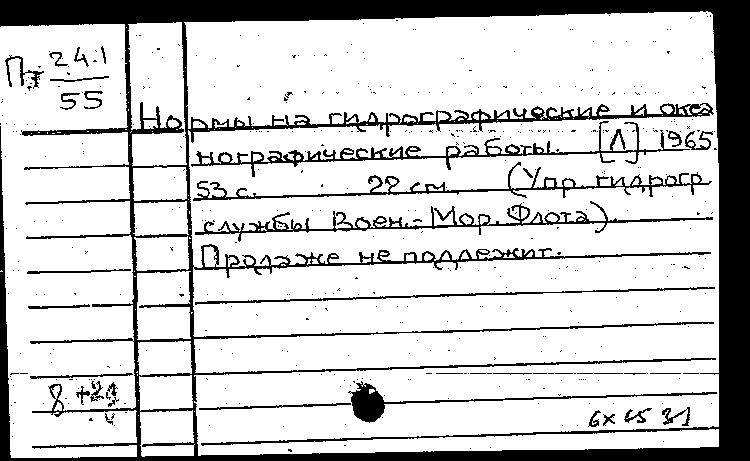 П 24.1
55
Нормы на гидрографические и океа
нографические работы. [Л], 1965.
53 с. 22 см. (Упр. гидрогр.
службы Воен.-Мор. Флота).
Продаже не подлежит.